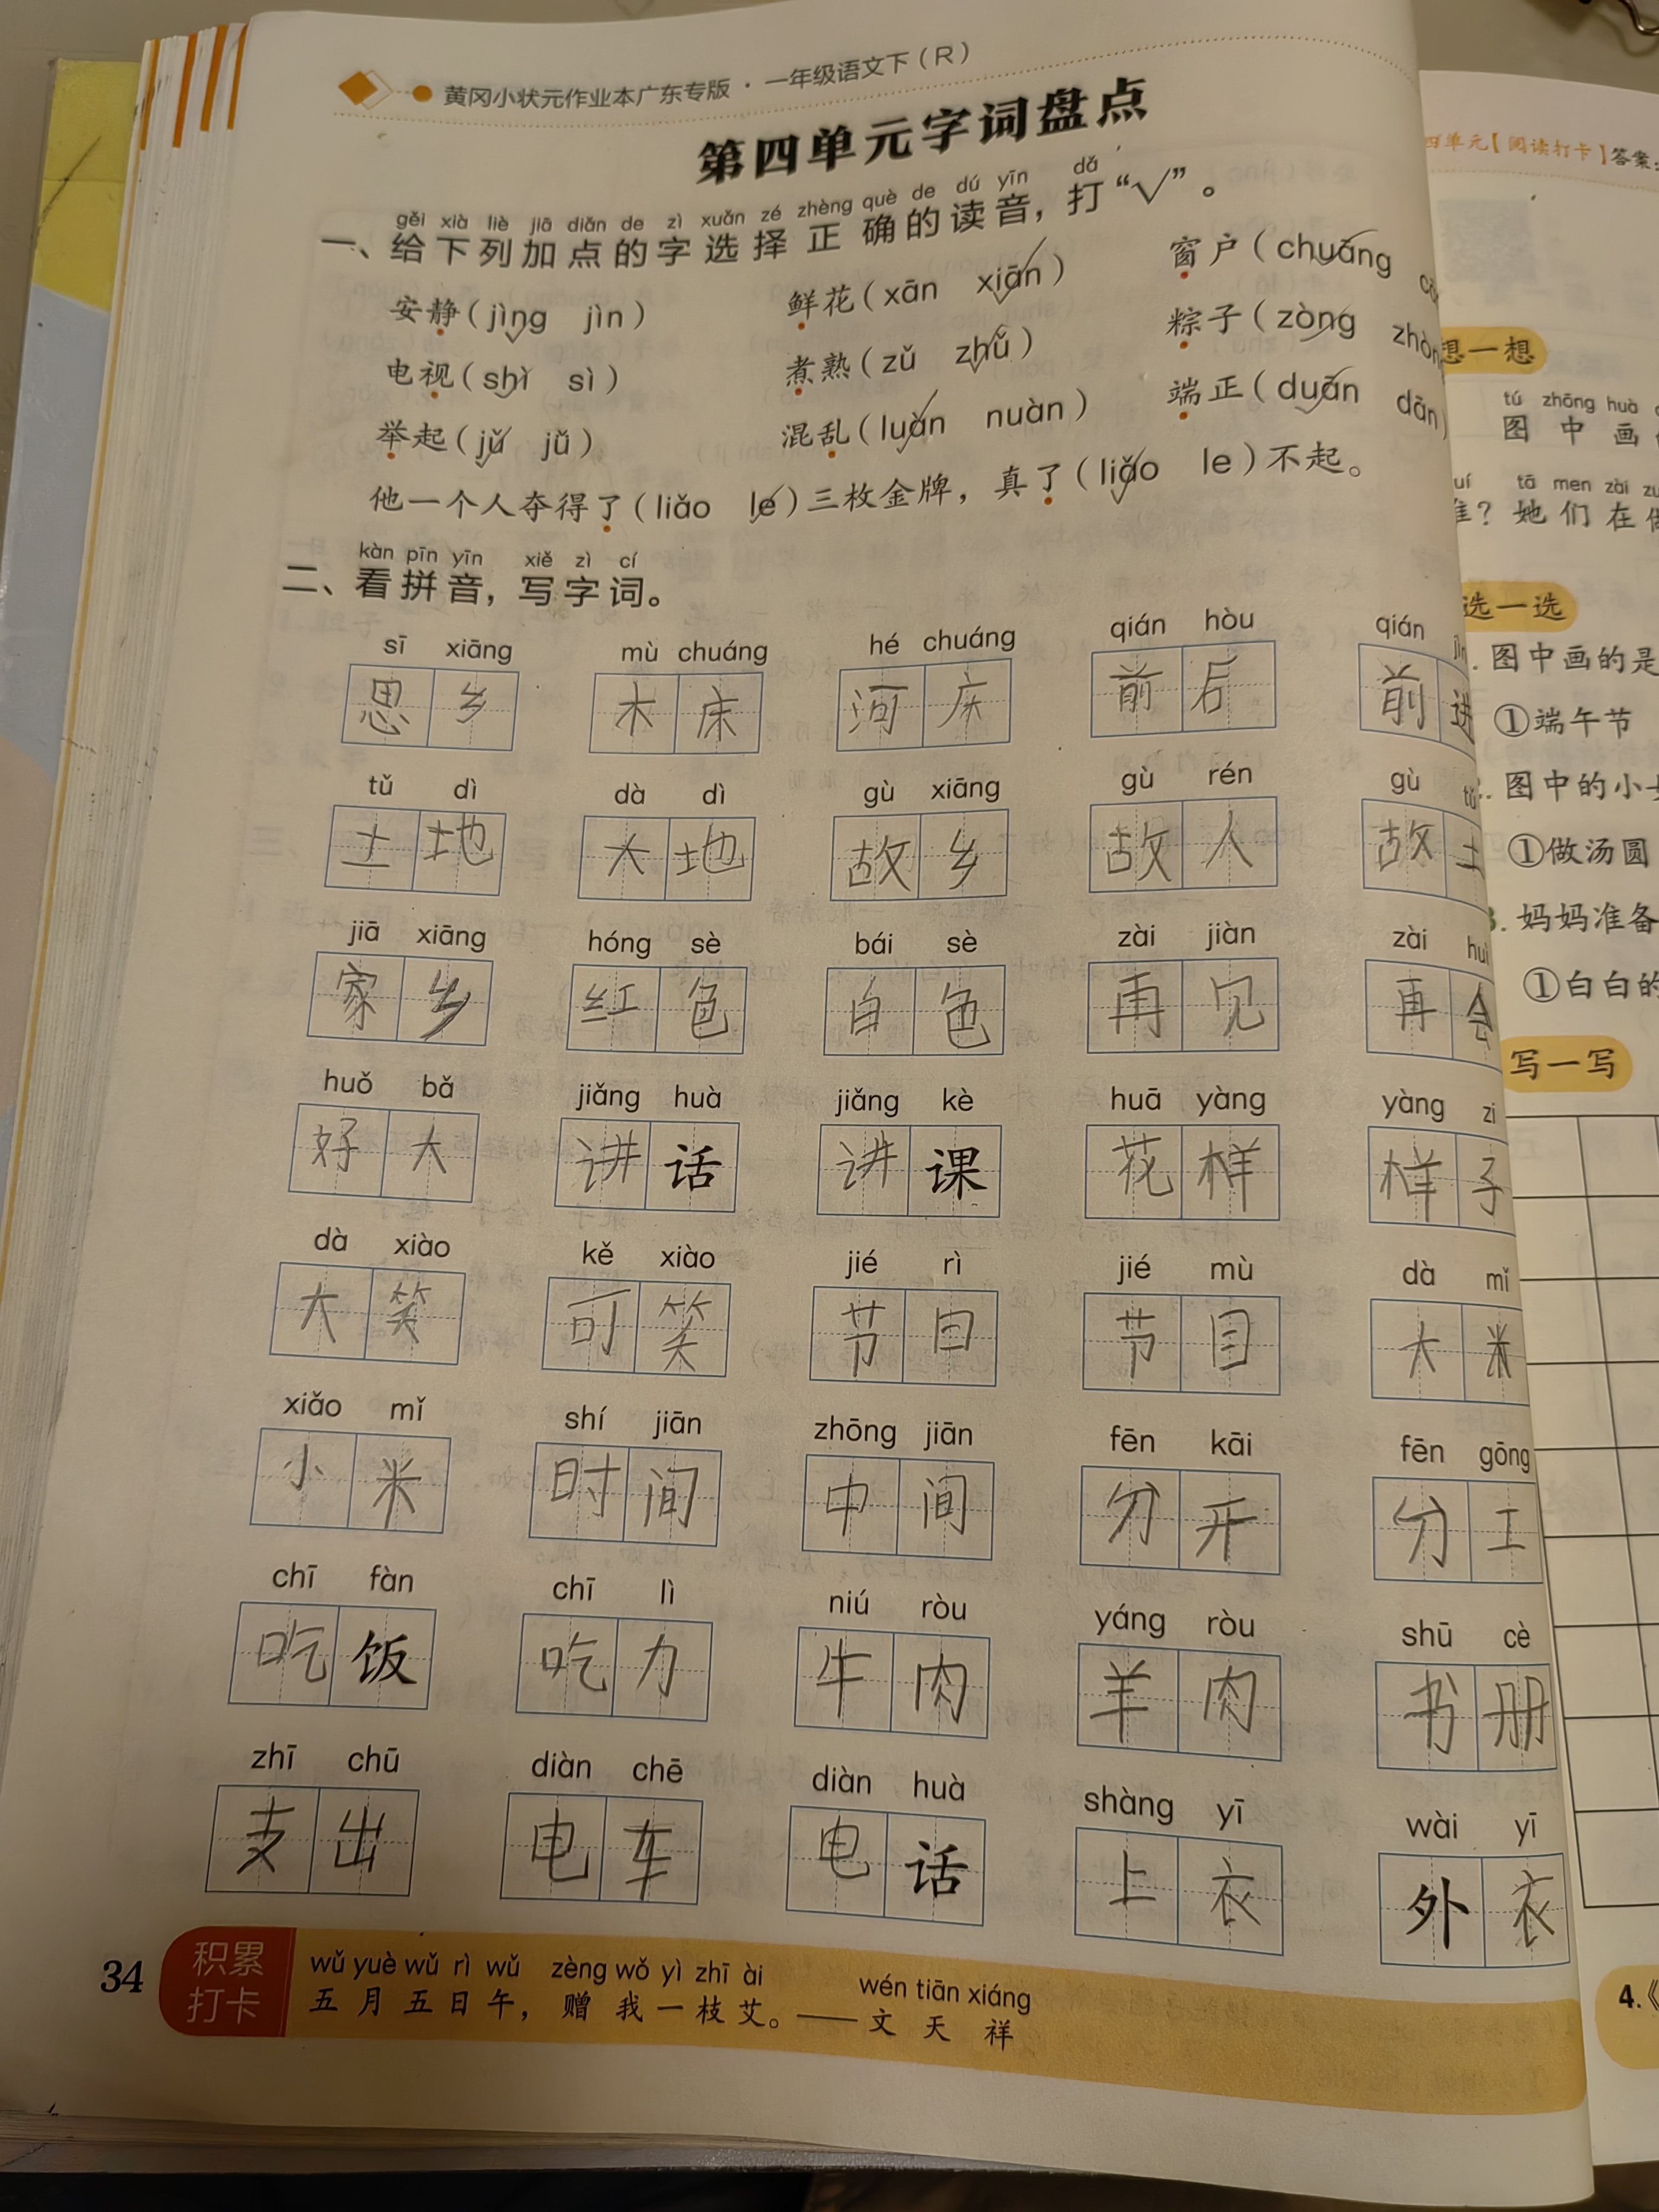 黄冈小状元作业本广东专版·一年级语文下（R）
第四单元字词盘点
gěi xià liè jiā diǎn de zì xuǎn zé zhèng què de dú yīn dǎ
一、给下列加点的字选择正确的读音，打“√”。
安静（jìng jìn） 鲜花（xān xiān） 窗户（chuāng
电视（shì sì） 煮熟（zǔ zhǔ） 粽子（zòng zhòn
举起（jǔ jǚ） 混乱（luàn nuàn） 端正（duān dān）
他一个人夺得了（liǎo le）三枚金牌，真了（liǎo le）不起。
kàn pīn yīn xiě zì cí
二、看拼音，写字词。
sī xiāng mù chuáng hé chuáng qián hòu qián jìn
思乡 木床 河床 前后 前进
tǔ dì dà dì gù xiāng gù rén gù tǔ
土地 大地 故乡 故人 故土
jiā xiāng hóng sè bái sè zài jiàn zài huì
家乡 红色 白色 再见 再会
huǒ bǎ jiǎng huà jiǎng kè huā yàng yàng zi
好大 讲话 讲课 花样 样子
dà xiào kě xiào jié rì jié mù dà mǐ
大笑 可笑 节日 节目 大米
xiǎo mǐ shí jiān zhōng jiān fēn kāi fēn gōng
小米 时间 中间 分开 分工
chī fàn chī lì niú ròu yáng ròu shū cè
吃饭 吃力 牛肉 羊肉 书册
zhī chū diàn chē diàn huà shàng yī wài yī
支出 电车 电话 上衣 外衣
34
积累
打卡
wǔ yuè wǔ rì wǔ zèng wǒ yì zhī ài wén tiān xiáng
五月五日午，赠我一枝艾。——文天祥
四单元【阅读打卡】答案：
想一想
tú zhōng huà
图中画
tā men zài
？她们在
选一选
图中画的是
①端午节
图中的小
①做汤圆
妈妈准备
①白白的
写一写
4.《